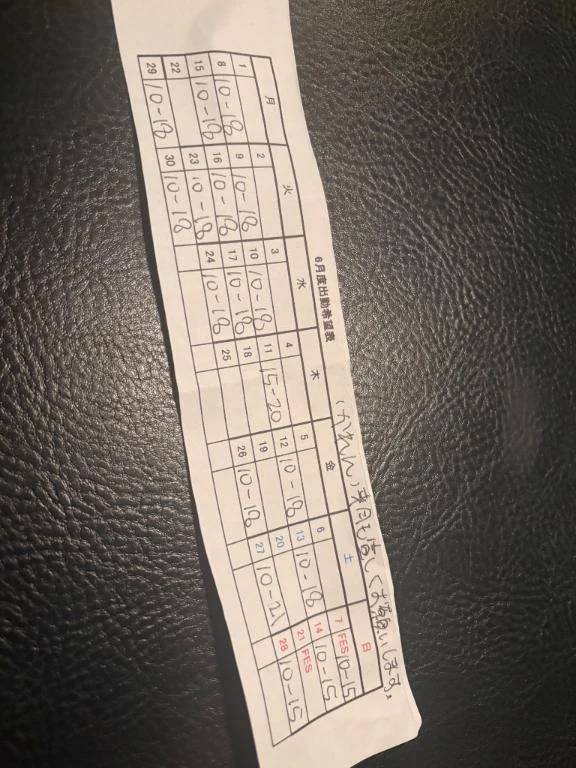 かれん 来月も宜しくお願いします。
6月度出勤希望表
月 火 水 木 金 土 日
1 2 3 4 5 6 7 FES 10-15
8 10-18 9 10-18 10 10-18 11 15-20 12 10-18 13 10-18 14 10-15
15 10-18 16 10-18 17 10-18 18 19 20 21 FES
22 23 10-18 24 10-18 25 26 10-18 27 10-21 28 10-15
29 10-18 30 10-18